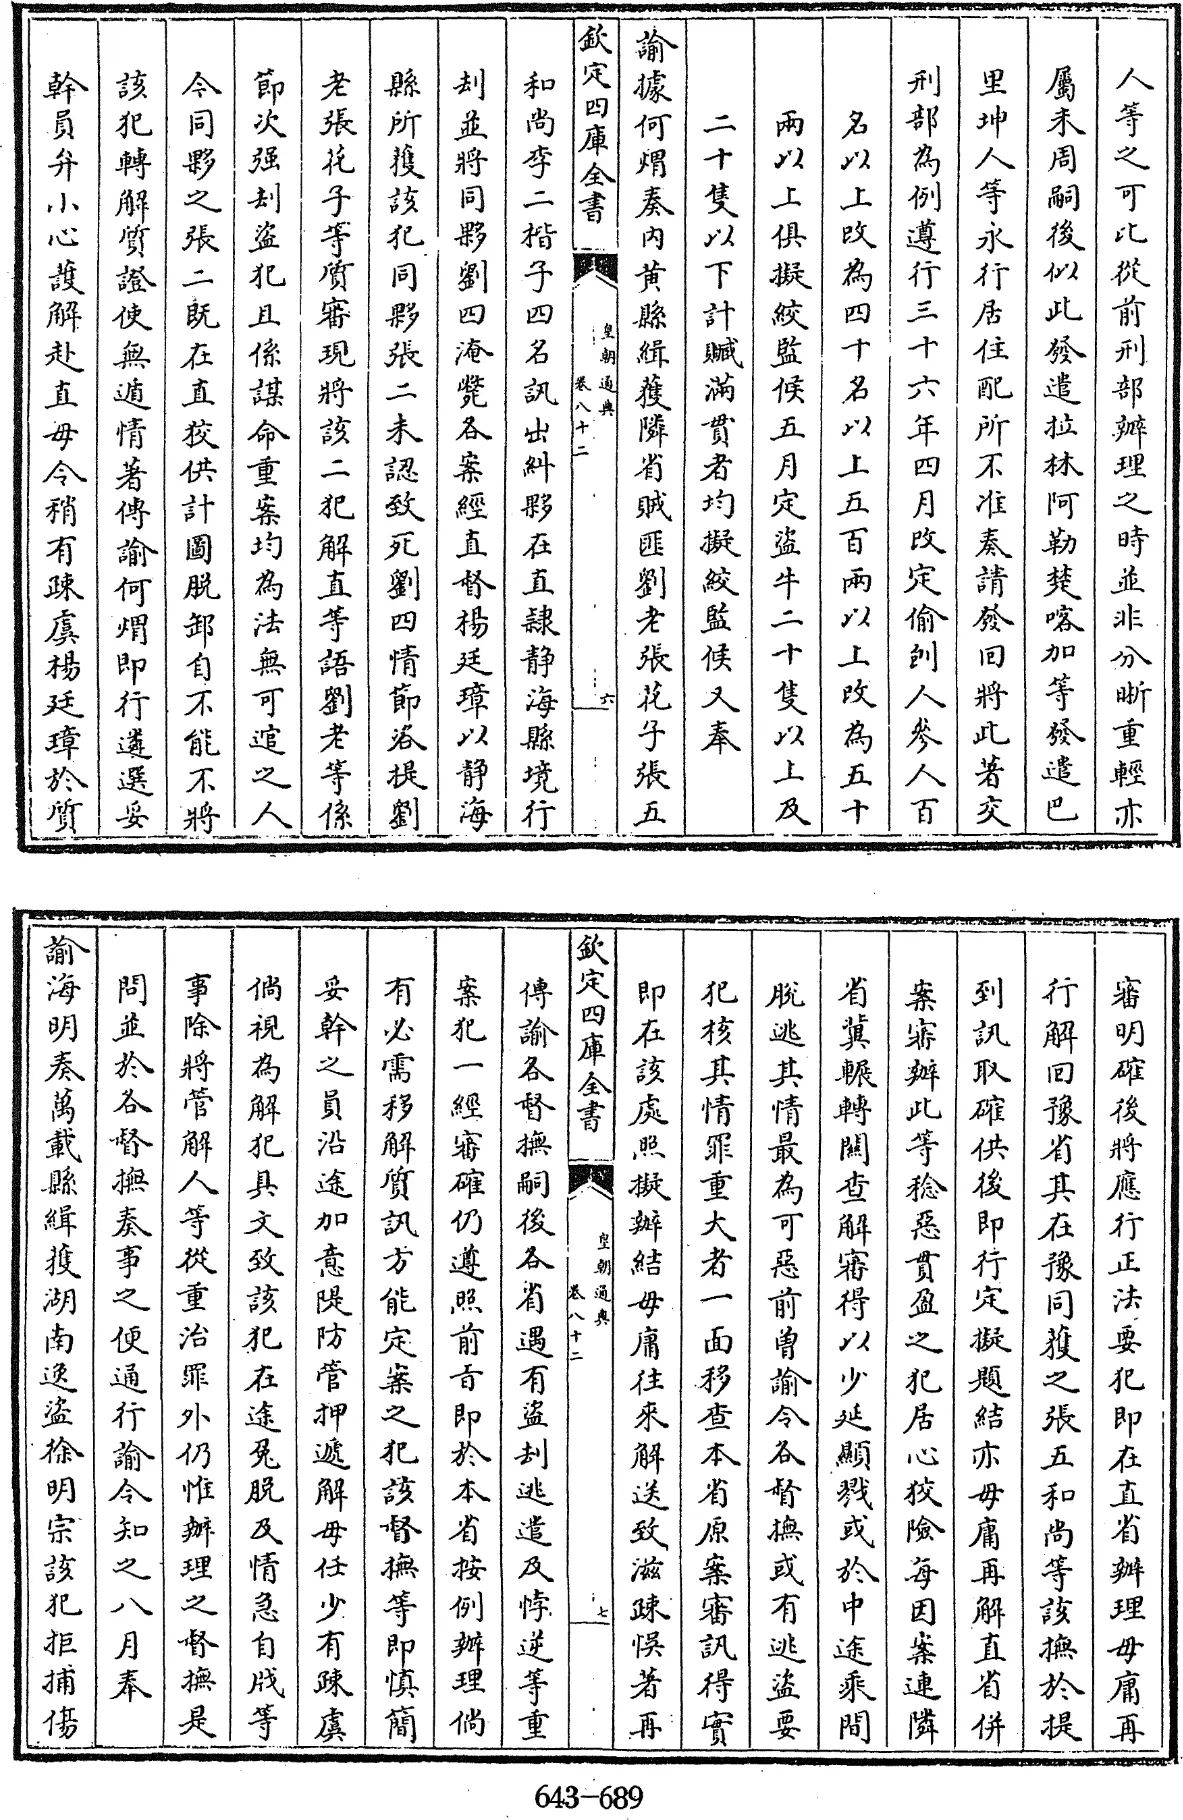 人等之可比從前刑部辦理之時並非分晰重輕亦
屬未周嗣後似此發遣拉林阿勒楚喀加等發遣巴
里坤人等永行居住配所不准奏請發回將此著交
刑部為例遵行三十六年四月改定偷刨人參人百
名以上改為四十名以上五百兩以上改為五十
兩以上俱擬絞監候五月定盜牛二十隻以上及
二十隻以下計贓滿貫者均擬絞監候又奉
諭據何煟奏內黃縣緝獲隣省賊匪劉老張花子張五
欽定四庫全書
皇朝通典
卷八十二
六
和尚李二揩子四名訊出糾夥在直隸静海縣境行
刦並將同夥劉四淹斃各案經直督楊廷璋以静海
縣所獲該犯同夥張二未認致死劉四情節咨提劉
老張花子等質審現將該二犯解直等語劉老等係
節次强刦盜犯且係謀命重案均為法無可逭之人
今同夥之張二既在直狡供計圖脱卸自不能不將
該犯轉解質證使無遁情著傳諭何煟即行遴選妥
幹員弁小心護解赴直毋令稍有疎虞楊廷璋於質
審明確後將應行正法要犯即在直省辦理毋庸再
行解回豫省其在豫同獲之張五和尚等該撫於提
到訊取確供後即行定擬題結亦毋庸再解直省併
案審辦此等稔惡貫盈之犯居心狡險每因案連隣
省冀輾轉關查解審得以少延顯戮或於中途乘間
脱逃其情最為可惡前曾諭令各督撫或有逃盜要
犯核其情罪重大者一面移查本省原案審訊得實
即在該處照擬辦結毋庸往來解送致滋疎悞著再
欽定四庫全書
皇朝通典
卷八十二
七
傳諭各督撫嗣後各省遇有盜刦逃遣及悖逆等重
案犯一經審確仍遵照前旨即於本省按例辦理倘
有必需移解質訊方能定案之犯該督撫等即慎簡
妥幹之員沿途加意隄防管押遞解毋任少有疎虞
倘視為解犯具文致該犯在途兔脱及情急自戕等
事除將管解人等從重治罪外仍惟辦理之督撫是
問並於各督撫奏事之便通行諭令知之八月奉
諭海明奏萬載縣緝獲湖南逸盜徐明宗該犯拒捕傷
643-689